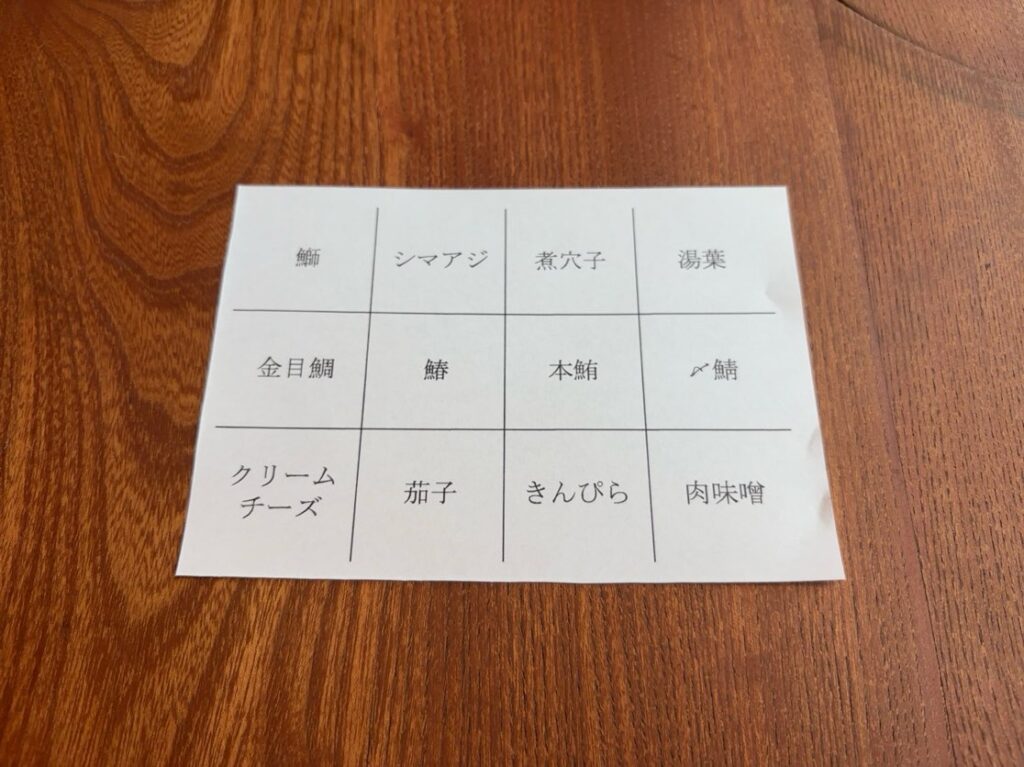 鰤 シマアジ 煮穴子 湯葉
金目鯛 鰆 本鮪 〆鯖
クリーム
チーズ 茄子 きんぴら 肉味噌